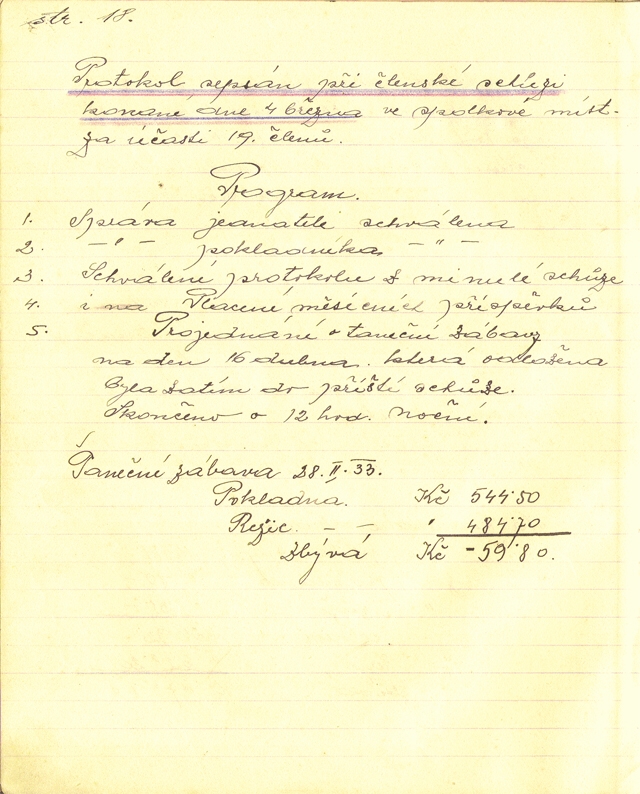 str. 18.
Protokol sepsán při členské schůzi
konané dne 4 března ve spolkové míst-
za účasti 19. členů.
Program.
1. Správa jednatele schválena
2. –"– pokladníka –"–
3. Schválení protokolu z minulé schůze
4. i na Placení měsíčních příspěvků
5. Projednání o taneční zábavy
na den 16 dubna. která odložena
byla zatím do příští schůze.
Skončeno o 12 hod. noční.
Taneční zábava 28. II. 33.
Pokladna. Kč 544·50
Režie. – – " 484·70
Zbývá Kč –59·80.